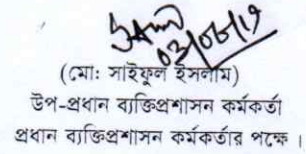 03/06/19
(মো: সাইফুল ইসলাম)
উপ-প্রধান ব্যক্তিপ্রশাসন কর্মকর্তা
প্রধান ব্যক্তিপ্রশাসন কর্মকর্তার পক্ষে।